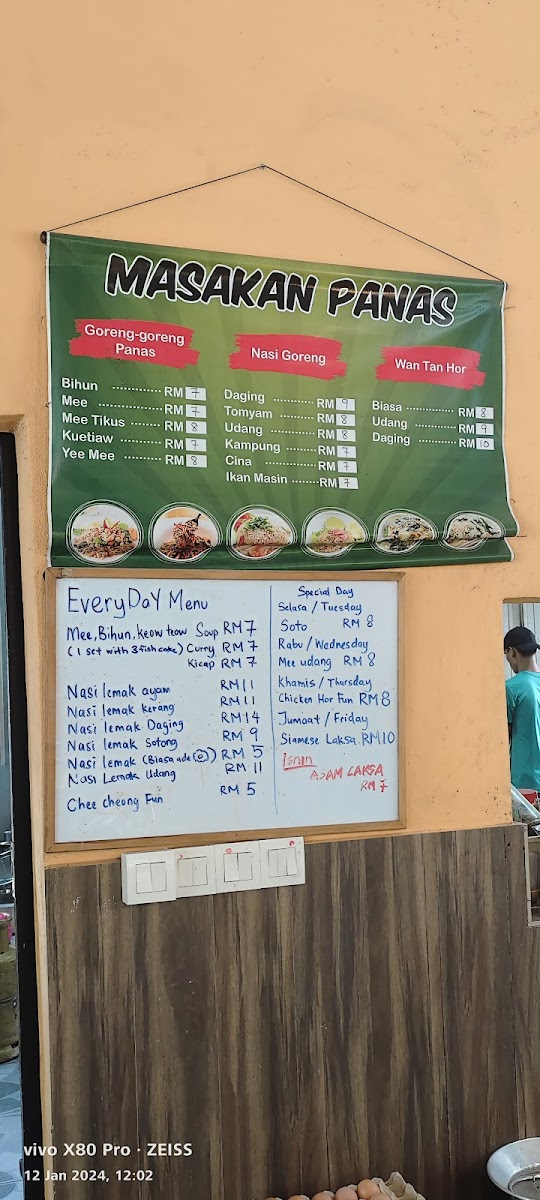 MASAKAN PANAS
Goreng-goreng
Panas
Bihun ............... RM 7
Mee ................. RM 7
Mee Tikus ........ RM 8
Kuetiaw ........... RM 7
Yee Mee .......... RM 8
Nasi Goreng
Daging ............ RM 9
Tomyam .......... RM 8
Udang ............. RM 8
Kampung ........ RM 7
Cina ................ RM 7
Ikan Masin ....... RM 7
Wan Tan Hor
Biasa ............... RM 8
Udang .............. RM 9
Daging ............. RM 10
EveryDaY Menu
Mee, Bihun, keow teow Soup RM 7
(1 set with 3 fish cake) Curry RM 7
Kicap RM 7
Nasi lemak ayam RM 11
Nasi lemak kerang RM 11
Nasi lemak Daging RM 14
Nasi lemak Sotong RM 9
Nasi lemak (Biasa ade) RM 5
Nasi Lemak Udang RM 11
Chee cheong Fun RM 5
Special Day
Selasa / Tuesday
Soto RM 8
Rabu / Wednesday
Mee udang RM 8
Khamis / Thursday
Chicken Hor Fun RM 8
Jumaat / Friday
Siamese Laksa RM 10
Isnin
ASAM LAKSA
RM 7
vivo X80 Pro · ZEISS
12 Jan 2024, 12:02